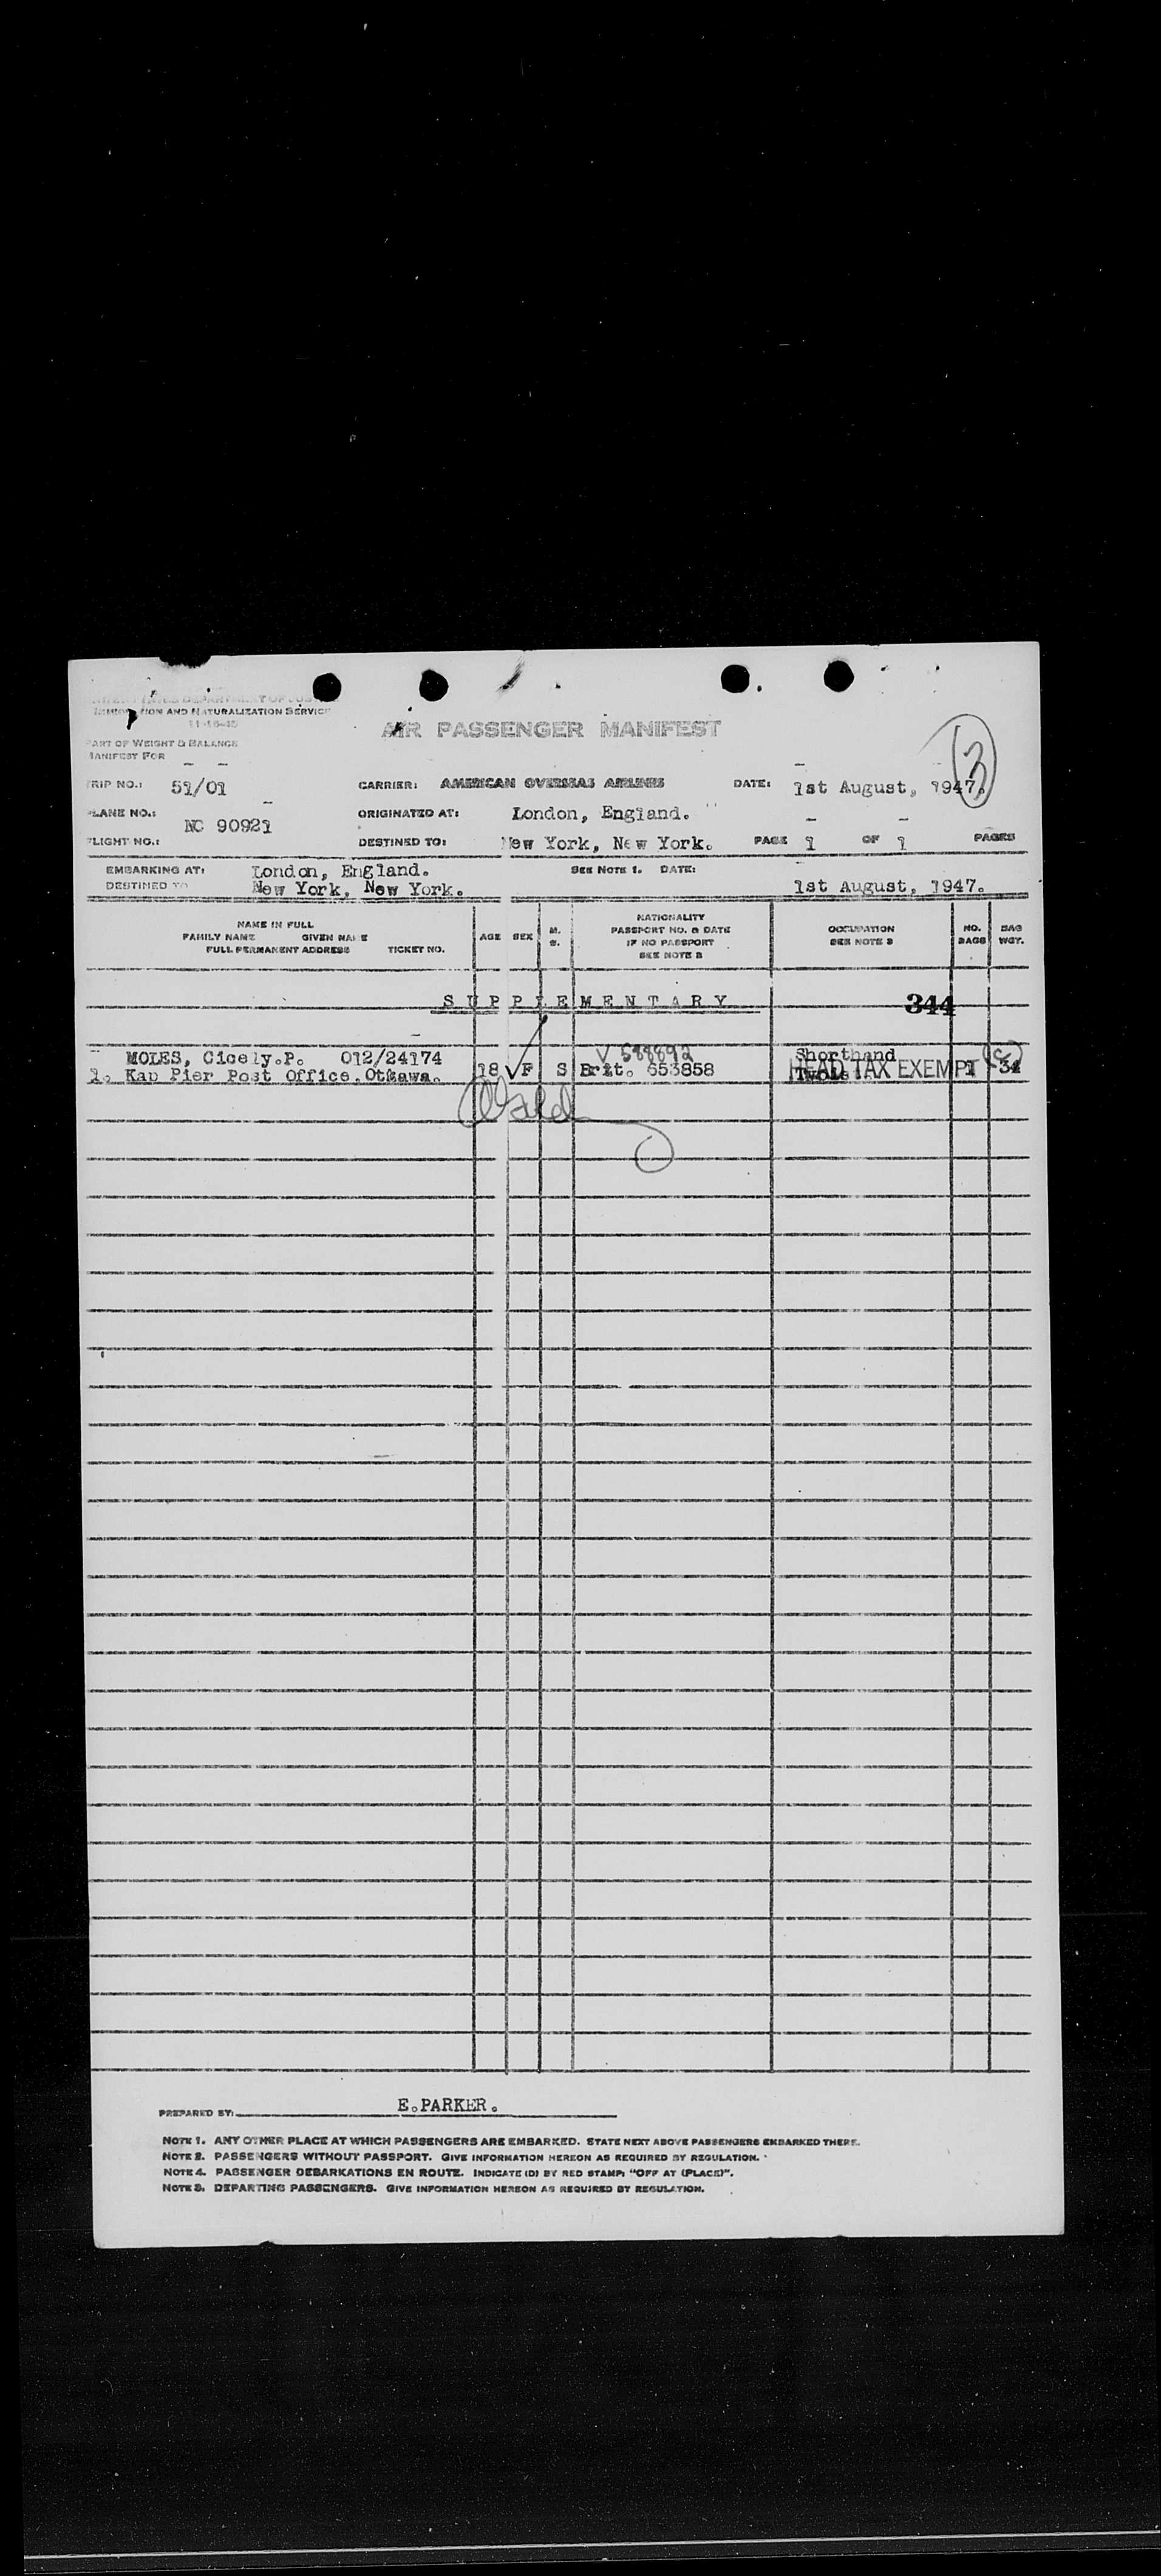 UNITED STATES DEPARTMENT OF JUSTICE
IMMIGRATION AND NATURALIZATION SERVICE
11-16-45
AIR PASSENGER MANIFEST
PART OF WEIGHT & BALANCE
MANIFEST FOR
3
TRIP NO.: 51/01 CARRIER: AMERICAN OVERSEAS AIRLINES DATE: 1st August, 1947.
PLANE NO.: NC 90921 ORIGINATED AT: London, England.
FLIGHT NO.: DESTINED TO: New York, New York. PAGE 1 OF 1 PAGES
EMBARKING AT: London, England. SEE NOTE 1. DATE:
DESTINED TO New York, New York. 1st August, 1947.
NAME IN FULL
FAMILY NAME GIVEN NAME
FULL PERMANENT ADDRESS TICKET NO.
AGE SEX M. S.
NATIONALITY
PASSPORT NO. & DATE
IF NO PASSPORT
SEE NOTE 2
OCCUPATION
SEE NOTE 3
NO. BAGS
BAG WGT.
SUPPLEMENTARY 344
MOLES, Cicely.P. 012/24174 V 588892 Shorthand
1. Kap Pier Post Office.Ottawa. 18 F S Brit. 653858 HEAD TAX EXEMPT 1 34
PREPARED BY: E.PARKER.
NOTE 1. ANY OTHER PLACE AT WHICH PASSENGERS ARE EMBARKED. STATE NEXT ABOVE PASSENGERS EMBARKED THERE.
NOTE 2. PASSENGERS WITHOUT PASSPORT. GIVE INFORMATION HEREON AS REQUIRED BY REGULATION.
NOTE 4. PASSENGER DEBARKATIONS EN ROUTE. INDICATE (D) BY RED STAMP: "OFF AT (PLACE)".
NOTE 3. DEPARTING PASSENGERS. GIVE INFORMATION HEREON AS REQUIRED BY REGULATION.